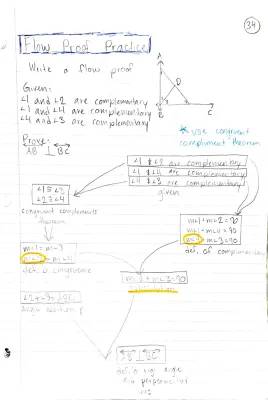 34
Flow Proof Practice
Write a flow proof
Given:
∠1 and ∠2 are complementary
∠1 and ∠4 are complementary
∠4 and ∠3 are complementary
Prove:
AB ⊥ BC
A
D
B
C
* use congruent
compliment theorem
∠1 & ∠2 are complementary
∠1 & ∠4 are complementary
∠4 & ∠3 are complementary
given
∠1 ≅ ∠3
∠2 ≅ ∠4
congruent complements
theorem
m∠1 + m∠2 = 90
m∠1 + m∠4 = 90
m∠3 = 90
def. of complementary
m∠1 = m∠3
= m∠4
def. of congruence
m∠2 = 90
substitution
def. of right angle
perpendicular